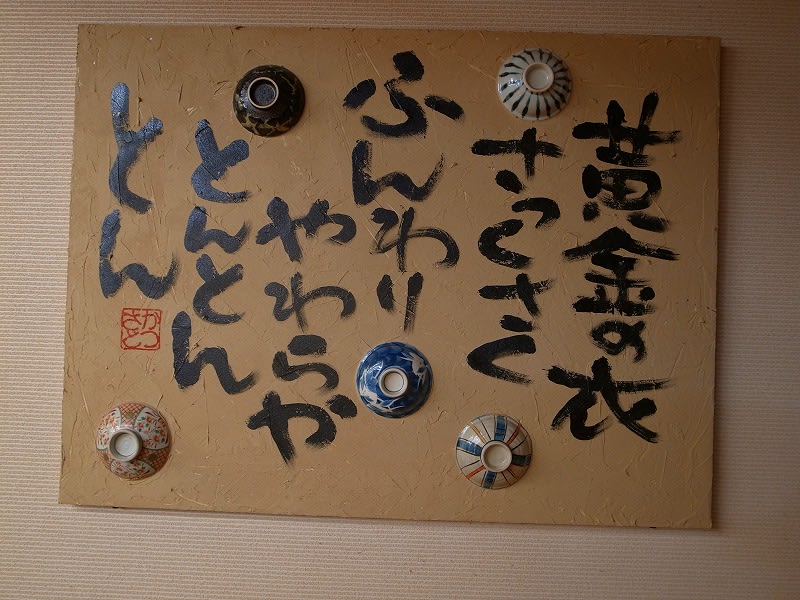 黄金の衣
さっくさく
ふんわり
やわらか
とんとん
とん
かつ
さと